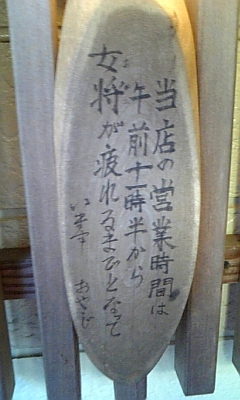 当店の営業時間は
午前十一時半から
女将が疲れるまでとなって
います あやじ